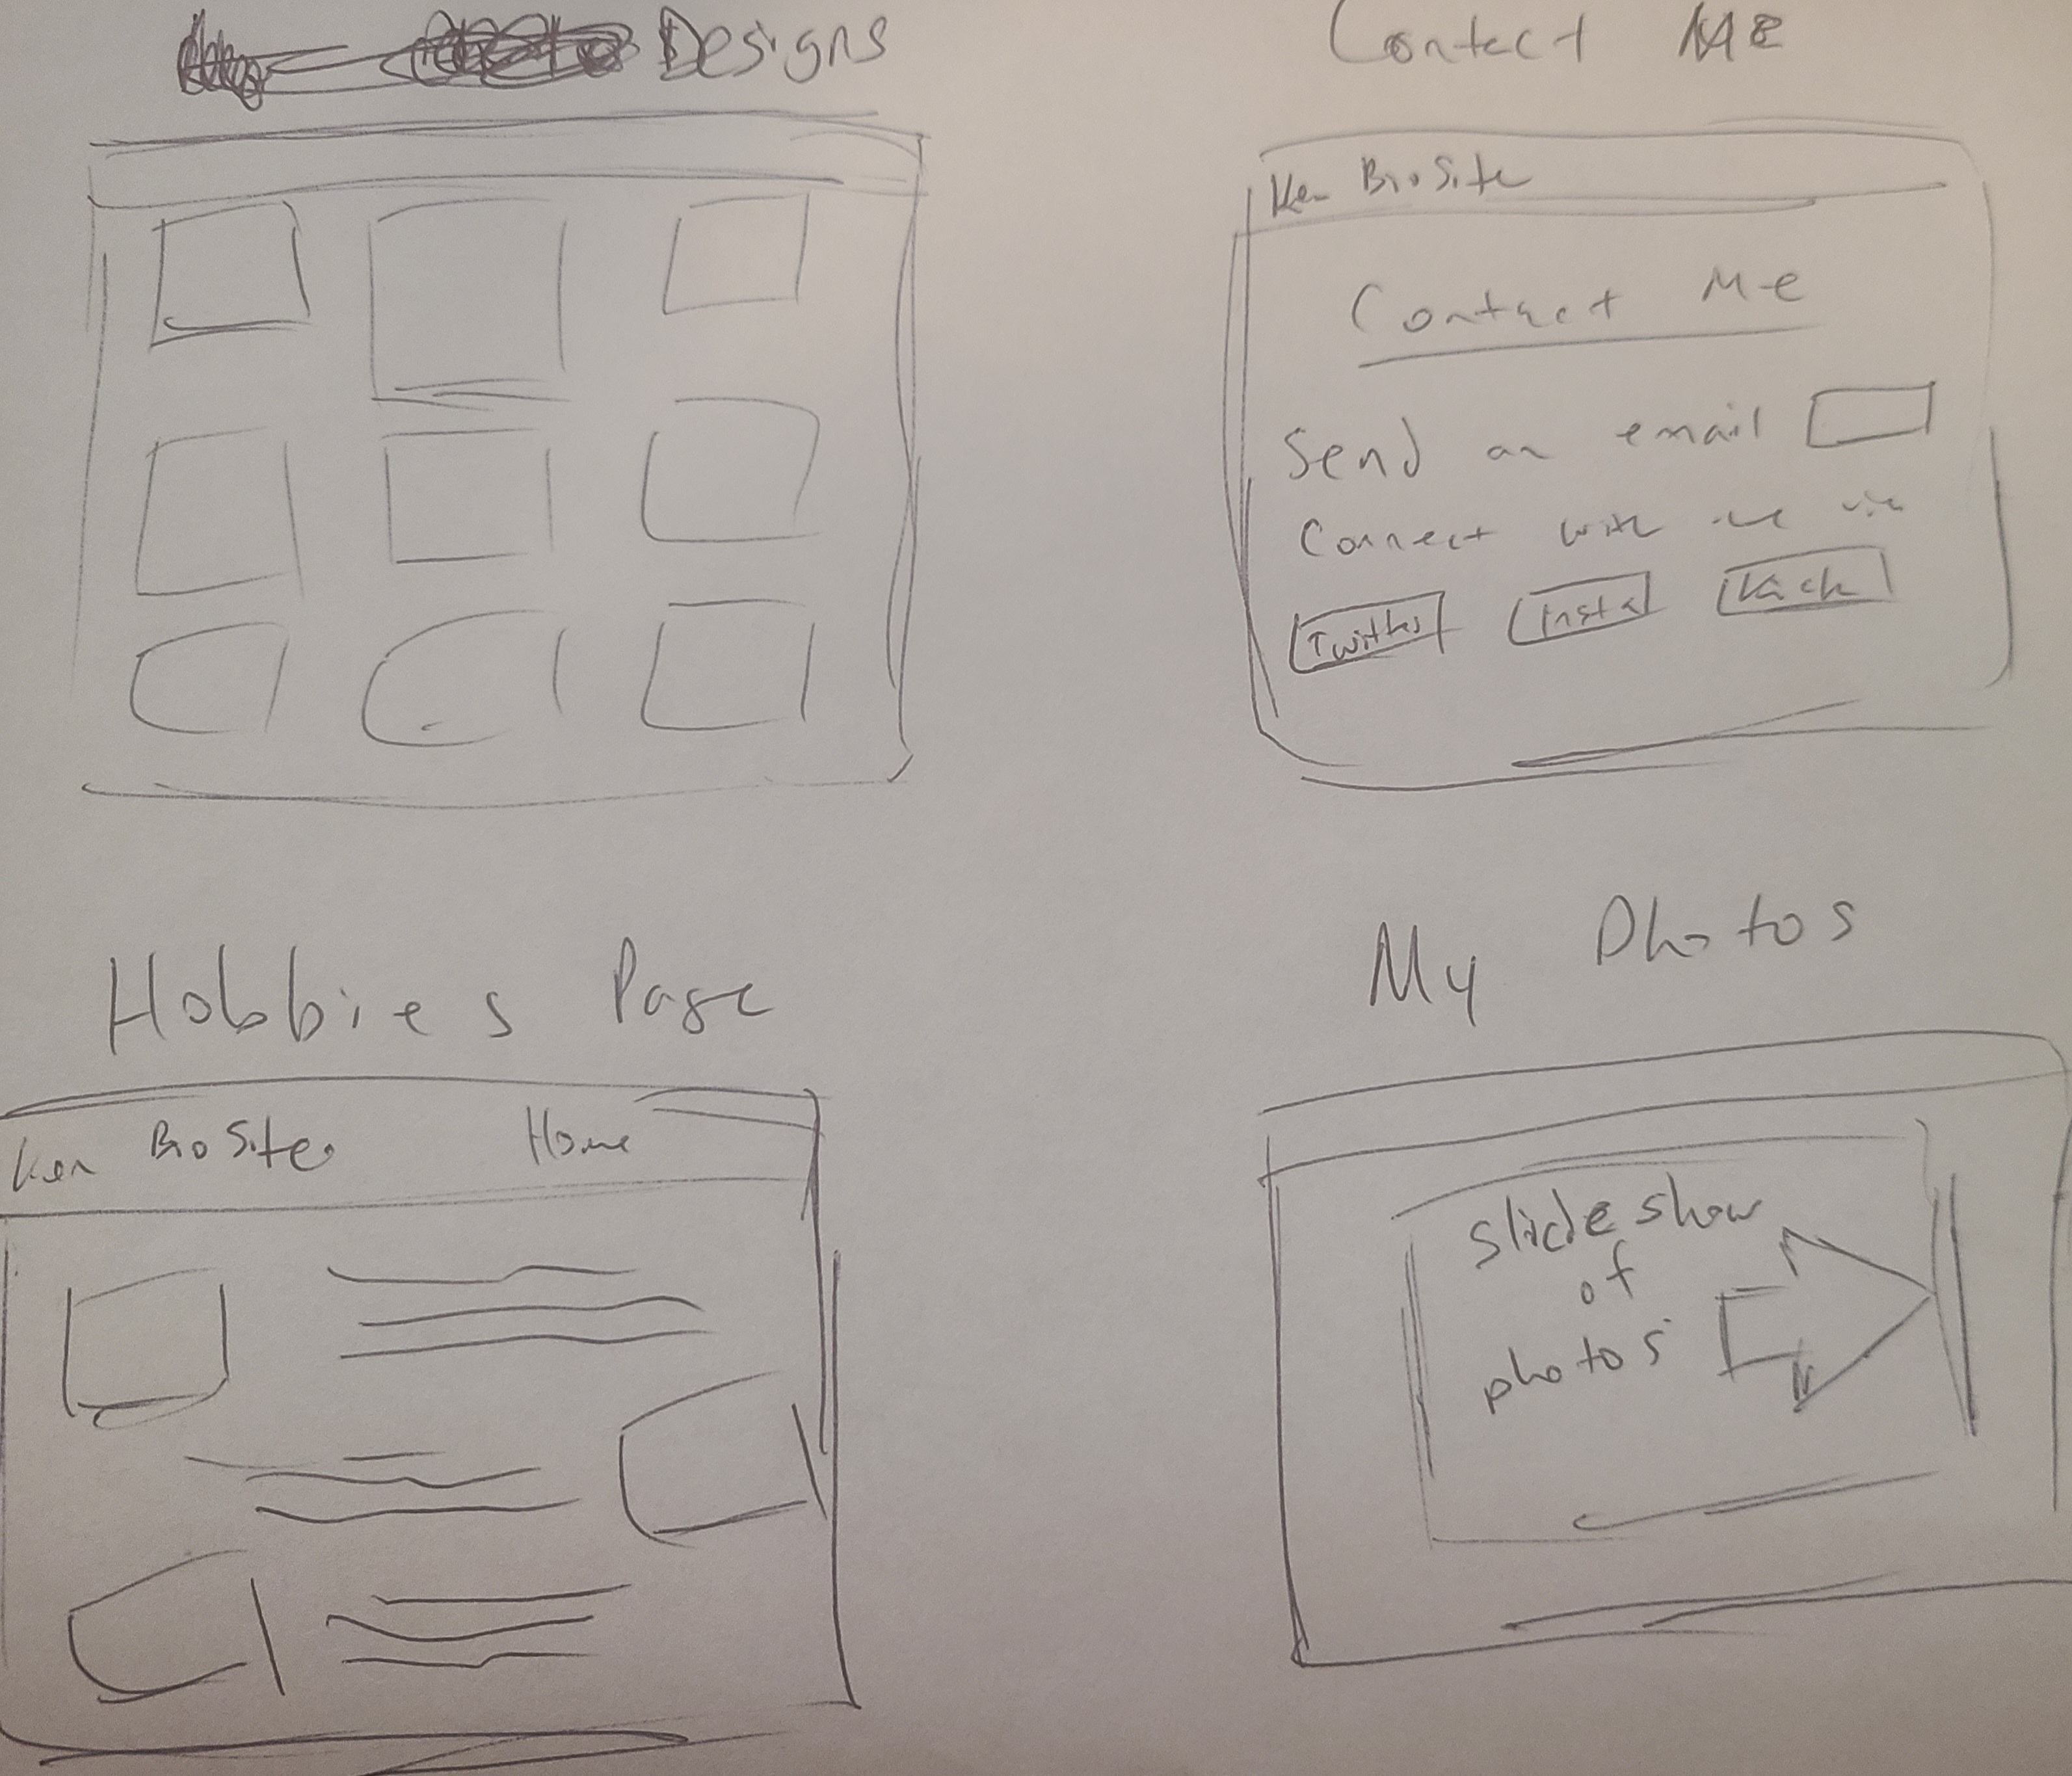 Designs
Contact Me
Ken Bio Site
Contact Me
Send an email
Connect with me via
Twitter Insta Kick
Hobbies Page
Ken Bio Site Home
My Photos
slideshow
of
photos